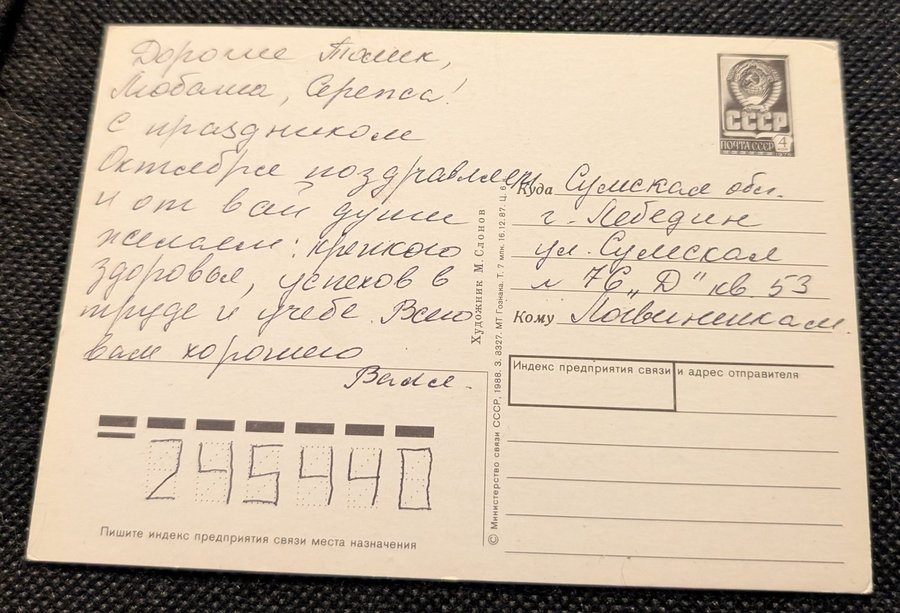 Дорогие Толик,
Любаша, Сережа!
С праздником
Октября поздравляем
и от всей души
желаем: крепкого
здоровья, успехов в
труде и учебе. Всего
вам хорошего
Валя.
СССР
ПОЧТА СССР 4
Куда Сумская обл.
г. Лебедин
ул. Сумская
76 "Д" кв 53
Кому Логвиненкам.
Индекс предприятия связи и адрес отправителя
Художник М. Слонов
© Министерство связи СССР, 1988. З. 8327. МТ Гознака. Т. 7 млн. 16.12.87. Ц. 6
245440
Пишите индекс предприятия связи места назначения